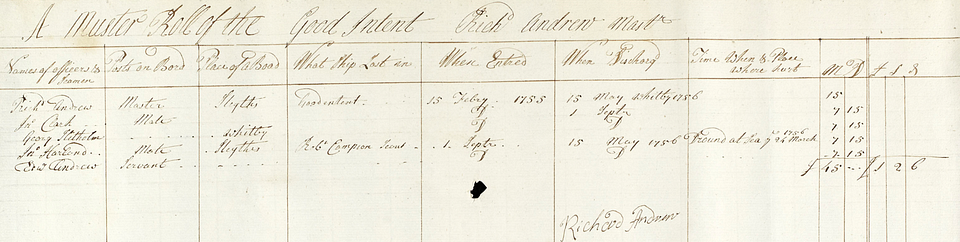 A Muster Roll of the Good Intent Rich.d Andrew Mast.r
Names of officers & Seamen Posts on Board Place of aboad What Ship Last in When Entred When Discharg Time When & Place where hurt M.o D £ S D
Rich.d Andrew Master Hyths Goodentent 15 Febry 1755 15 May whitby 1756 15
Jn.o Clark Mate 1 Septr 7 15
Georg whitby 7 15
Jn.o Mate Hyths Rob.t Campion Scout 1 Septr 15 May 1756 Dround at Sea ye 24 March 1756 7 15
Andrew Servant 7 15
£ 45 £ 1 2 6
Richard Andrew